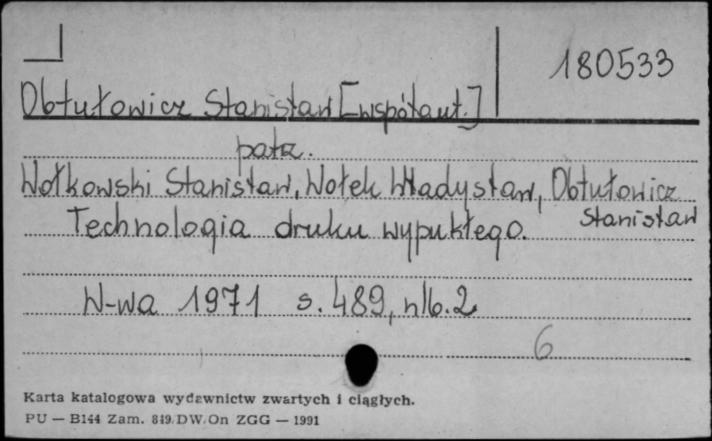 180533
Obtułowicz Stanisław [współaut.]
patrz.
Wołkowski Stanisław, Wołek Władysław, Obtułowicz
Stanisław
Technologia druku wypukłego.
W-wa 1971 s. 489, nlb. 2
6
Karta katalogowa wydawnictw zwartych i ciągłych.
PU — B144 Zam. 849 DW. On ZGG — 1991